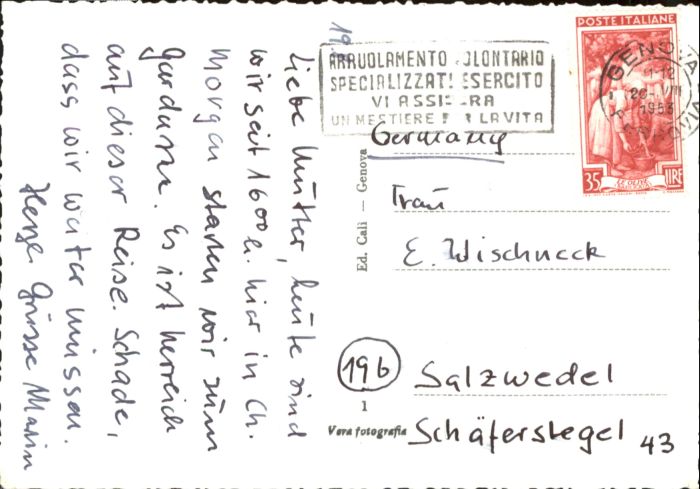 19
Liebe Mutter, heute sind
wir seit 1600 h. hier in Ch.
Morgen starten wir zum
Gardasee. Es ist herrlich
auf dieser Reise. Schade,
dass wir weiter müssen.
Herzl. Grüsse
ARRUOLAMENTO VOLONTARIO
SPECIALIZZATI ESERCITO
VI ASSICURA
UN MESTIERE PER LA VITA
POSTE ITALIANE
GENOVA
1953
FERROVIA
35 LIRE
Germany
Frau
E. Wischneck
19b
Salzwedel
Schäferstegel 43
Ed. Cali — Genova
1
Vera fotografia